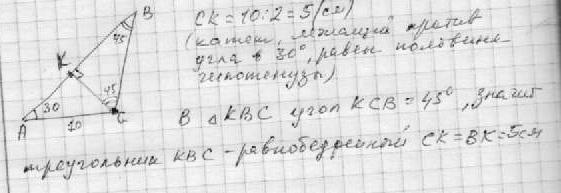 B
CK = 10:2 = 5 (см)
(катет, лежащий против
угла в 30°, равен половине
гипотенузы)
45
K
45
30
A
10
C
В △ KBC угол KCB = 45°, значит
треугольник KBC - равнобедренный CK = BK = 5см